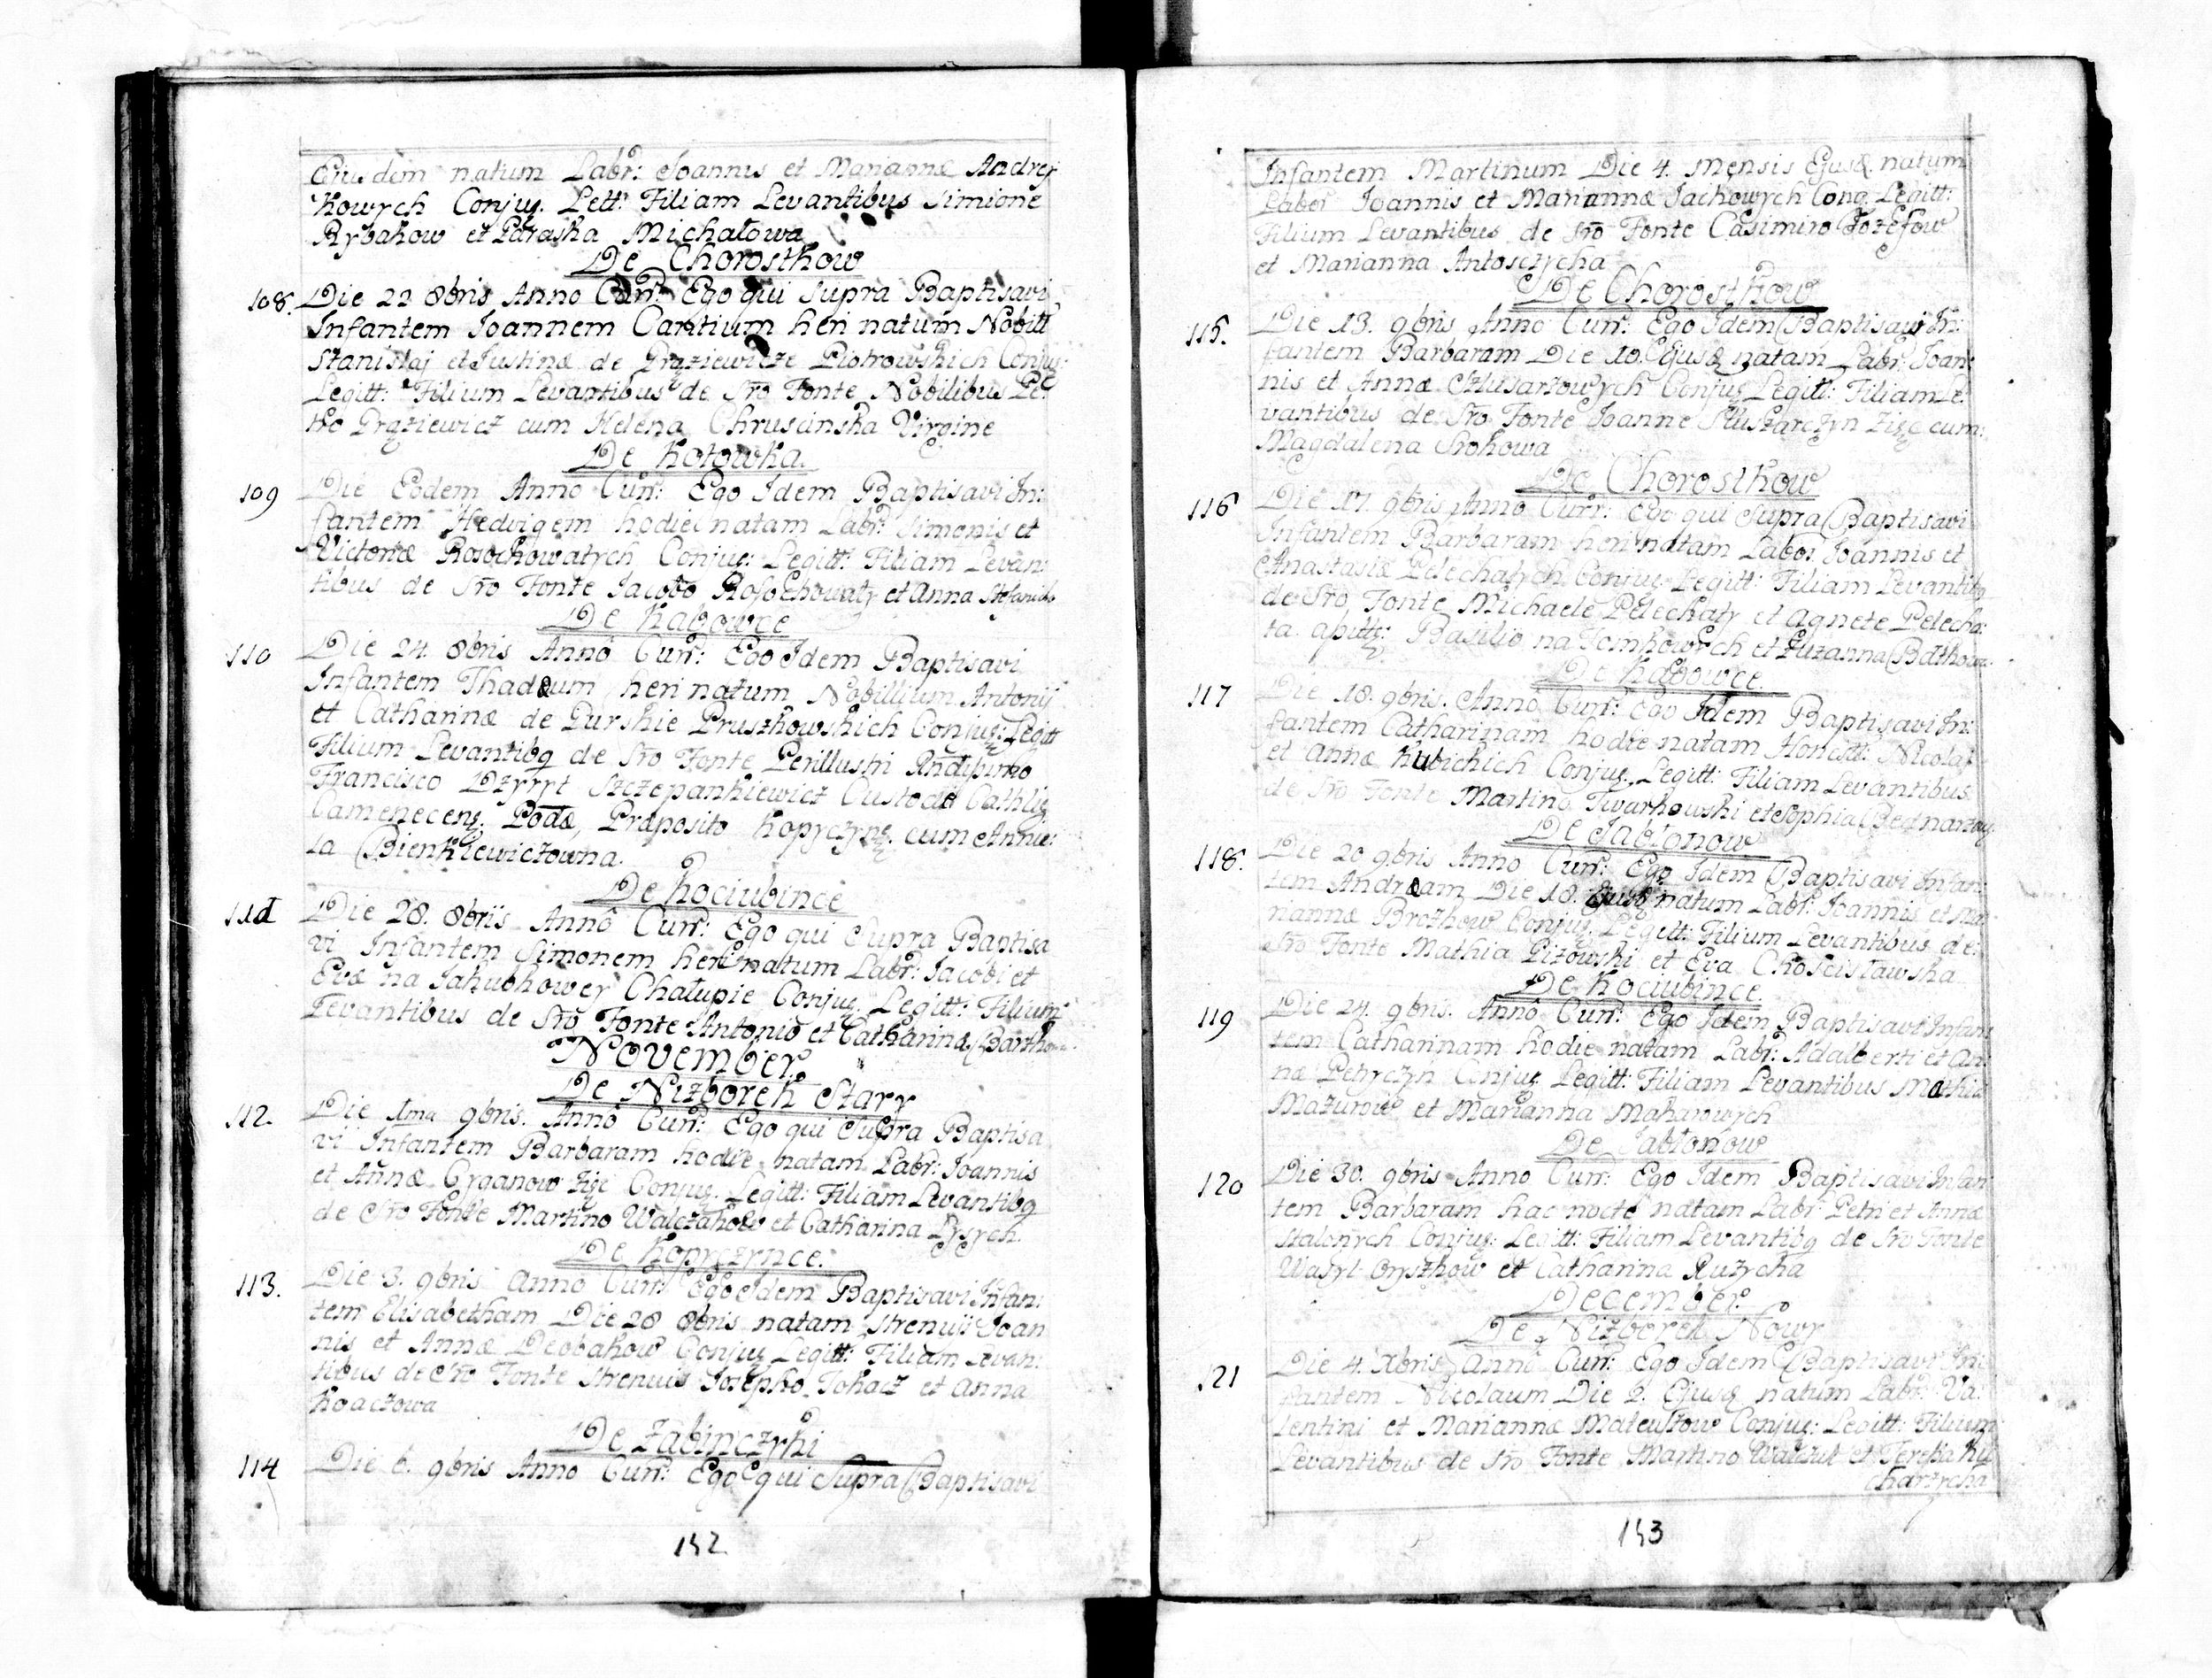 Eiusdem natum Labr: Joannis et Mariannæ Andrej
Kowych Conjug. Lett: Filiam Levantibus Simione
Rybakow et Paraska Michałowa
De Chorostkow
108. Die 22 8bris Anno Curr: Ego qui Supra Baptisavi
Infantem Joannem Cantium heri natum Nobill
Stanislaj et Justinæ de Grąziewicze Piotrowskich Conjug:
Legitt: Filium Levantibus de Sro Fonte Nobilibus Pe
tro Grąziewicz cum Helena Chruscinska Virgine
De Kotowka.
109 Die Eodem Anno Curr: Ego Idem Baptisavi In:
fantem Hedvigem hodie natam Labr: Simonis et
Victoriæ Rosochowatych Conjug: Legitt: Filiam Levan:
tibus de Sro Fonte Jacobo Rosochowaty et Anna
De Kabowce
110 Die 24. 8bris Anno Curr: Ego Idem Baptisavi
Infantem Thadæum heri natum Nobillium Antonij
et Catharinæ de Gurskie Pruszkowskich Conjug: Legitt
Filium Levantibq de Sro Fonte Perillustri Rndissimo
Francisco Dzyryt Szczepankiewicz Custode Cathlig
Camenecens. Podæ, Præposito Kopyczyng. cum Annie:
la Bienkiewiczowna.
De Kociubince
111 Die 28. 8bris Anno Curr: Ego qui Supra Baptisa
vi Infantem Simonem heri natum Labr: Jacobi et
Evæ na Jakubkowey Chałupie Conjug. Legitt: Filium
Levantibus de Sro Fonte Antonio et Catharina
November.
De Nizborek Stary
112. Die 1ma 9bris. Anno Curr: Ego qui Supra Baptisa
vi Infantem Barbaram hodie natam Labr: Joannis
et Annæ Cyganow Conjug. Legitt: Filiam Levantibq
de Sro Fonte Martino Walczakow et Catharina Łysych.
De Kopyczynce.
113. Die 3. 9bris Anno Curr: Ego Idem Baptisavi Infan:
tem Elisabetham Die 28 8bris natam Strenuii Joan
nis et Annæ Conjug Legitt: Filiam Levan:
tibus de Sro Fonte Strenuis Josepho Tokacz et Anna
Koaczowa
De Zabinczyki
114 Die 6. 9bris Anno Curr: Ego qui Supra Baptisavi
152
Infantem Martinum Die 4. mensis Ejusd. natum
Labor Joannis et Mariannæ Jachowych Cong. Legitt:
Filium Levantibus de Sro Fonte Casimiro Jozefow
et Marianna Antosczycha
De Chorostkow
115. Die 13. 9bris Anno Curr: Ego Idem Baptisavi In:
fantem Barbaram Die 10. Ejusd natam Labr: Joan:
nis et Annæ Szlusarzowych Conjug Legitt: Filiam Le:
vantibus de Sro Fonte Joanne cum
Magdalena Srokowa
De Chorostkow
116 Die 17. 9bris Anno Curr: Ego qui Supra Baptisavi
Infantem Barbaram heri natam Labor Joannis et
Anastasiæ Pelechatych Conjug Legitt: Filiam Levantibq
de Sro, Fonte Michaele Pelechaty et Agnete Pelecha:
ta. Basilio na Tomkowych et Zuzanna
De Kabowce.
117 Die 18. 9bris. Anno Curr: Ego Idem Baptisavi In:
fantem Catharinam hodie natam Honestt: Nicolai
et Annæ Kubickich Conjug. Legitt: Filiam Levantibus
de Sro Fonte Martino Twarkowski et Sophia
De Jabłonow
118. Die 20 9bris Anno Curr: Ego Idem Baptisavi Infan:
tem Andræam Die 18. Ejusd natum Labr: Joannis et Ma
riannæ Brozkow Conjug. Legitt: Filium Levantibus de:
Sro Fonte Mathia Pizowski et Eva Choscislawska
De Kociubince.
119 Die 24. 9bris. Anno Curr: Ego Idem Baptisavi Infan:
tem Catharinam hodie natam Labr: Adalberti et An:
næ Petryczyn Conjug Legitt: Filiam Levantibus Mathia
Mazurow et Marianna Makarowych
De Jabłonow
120 Die 30. 9bris Anno Curr: Ego Idem Baptisavi Infan
tem Barbaram hac nocte natam Labr: Petri et Annæ
Stalonych Conjug: Legitt: Filiam Levantibq de Sro Fonte
Wasyl Oryszkow et Catharina Ruzycha
December.
De Nizborek Nowy
121 Die 4. Xbris Anno Curr: Ego Idem Baptisavi In:
fantem Nicolaum Die 2. Ejusd natum Labr: Va:
lentini et Mariannæ Mateuszow Conjug: Legitt: Filium
Levantibus de Sro Fonte Martino Walczuk et Teresia Ku
charzycha
153